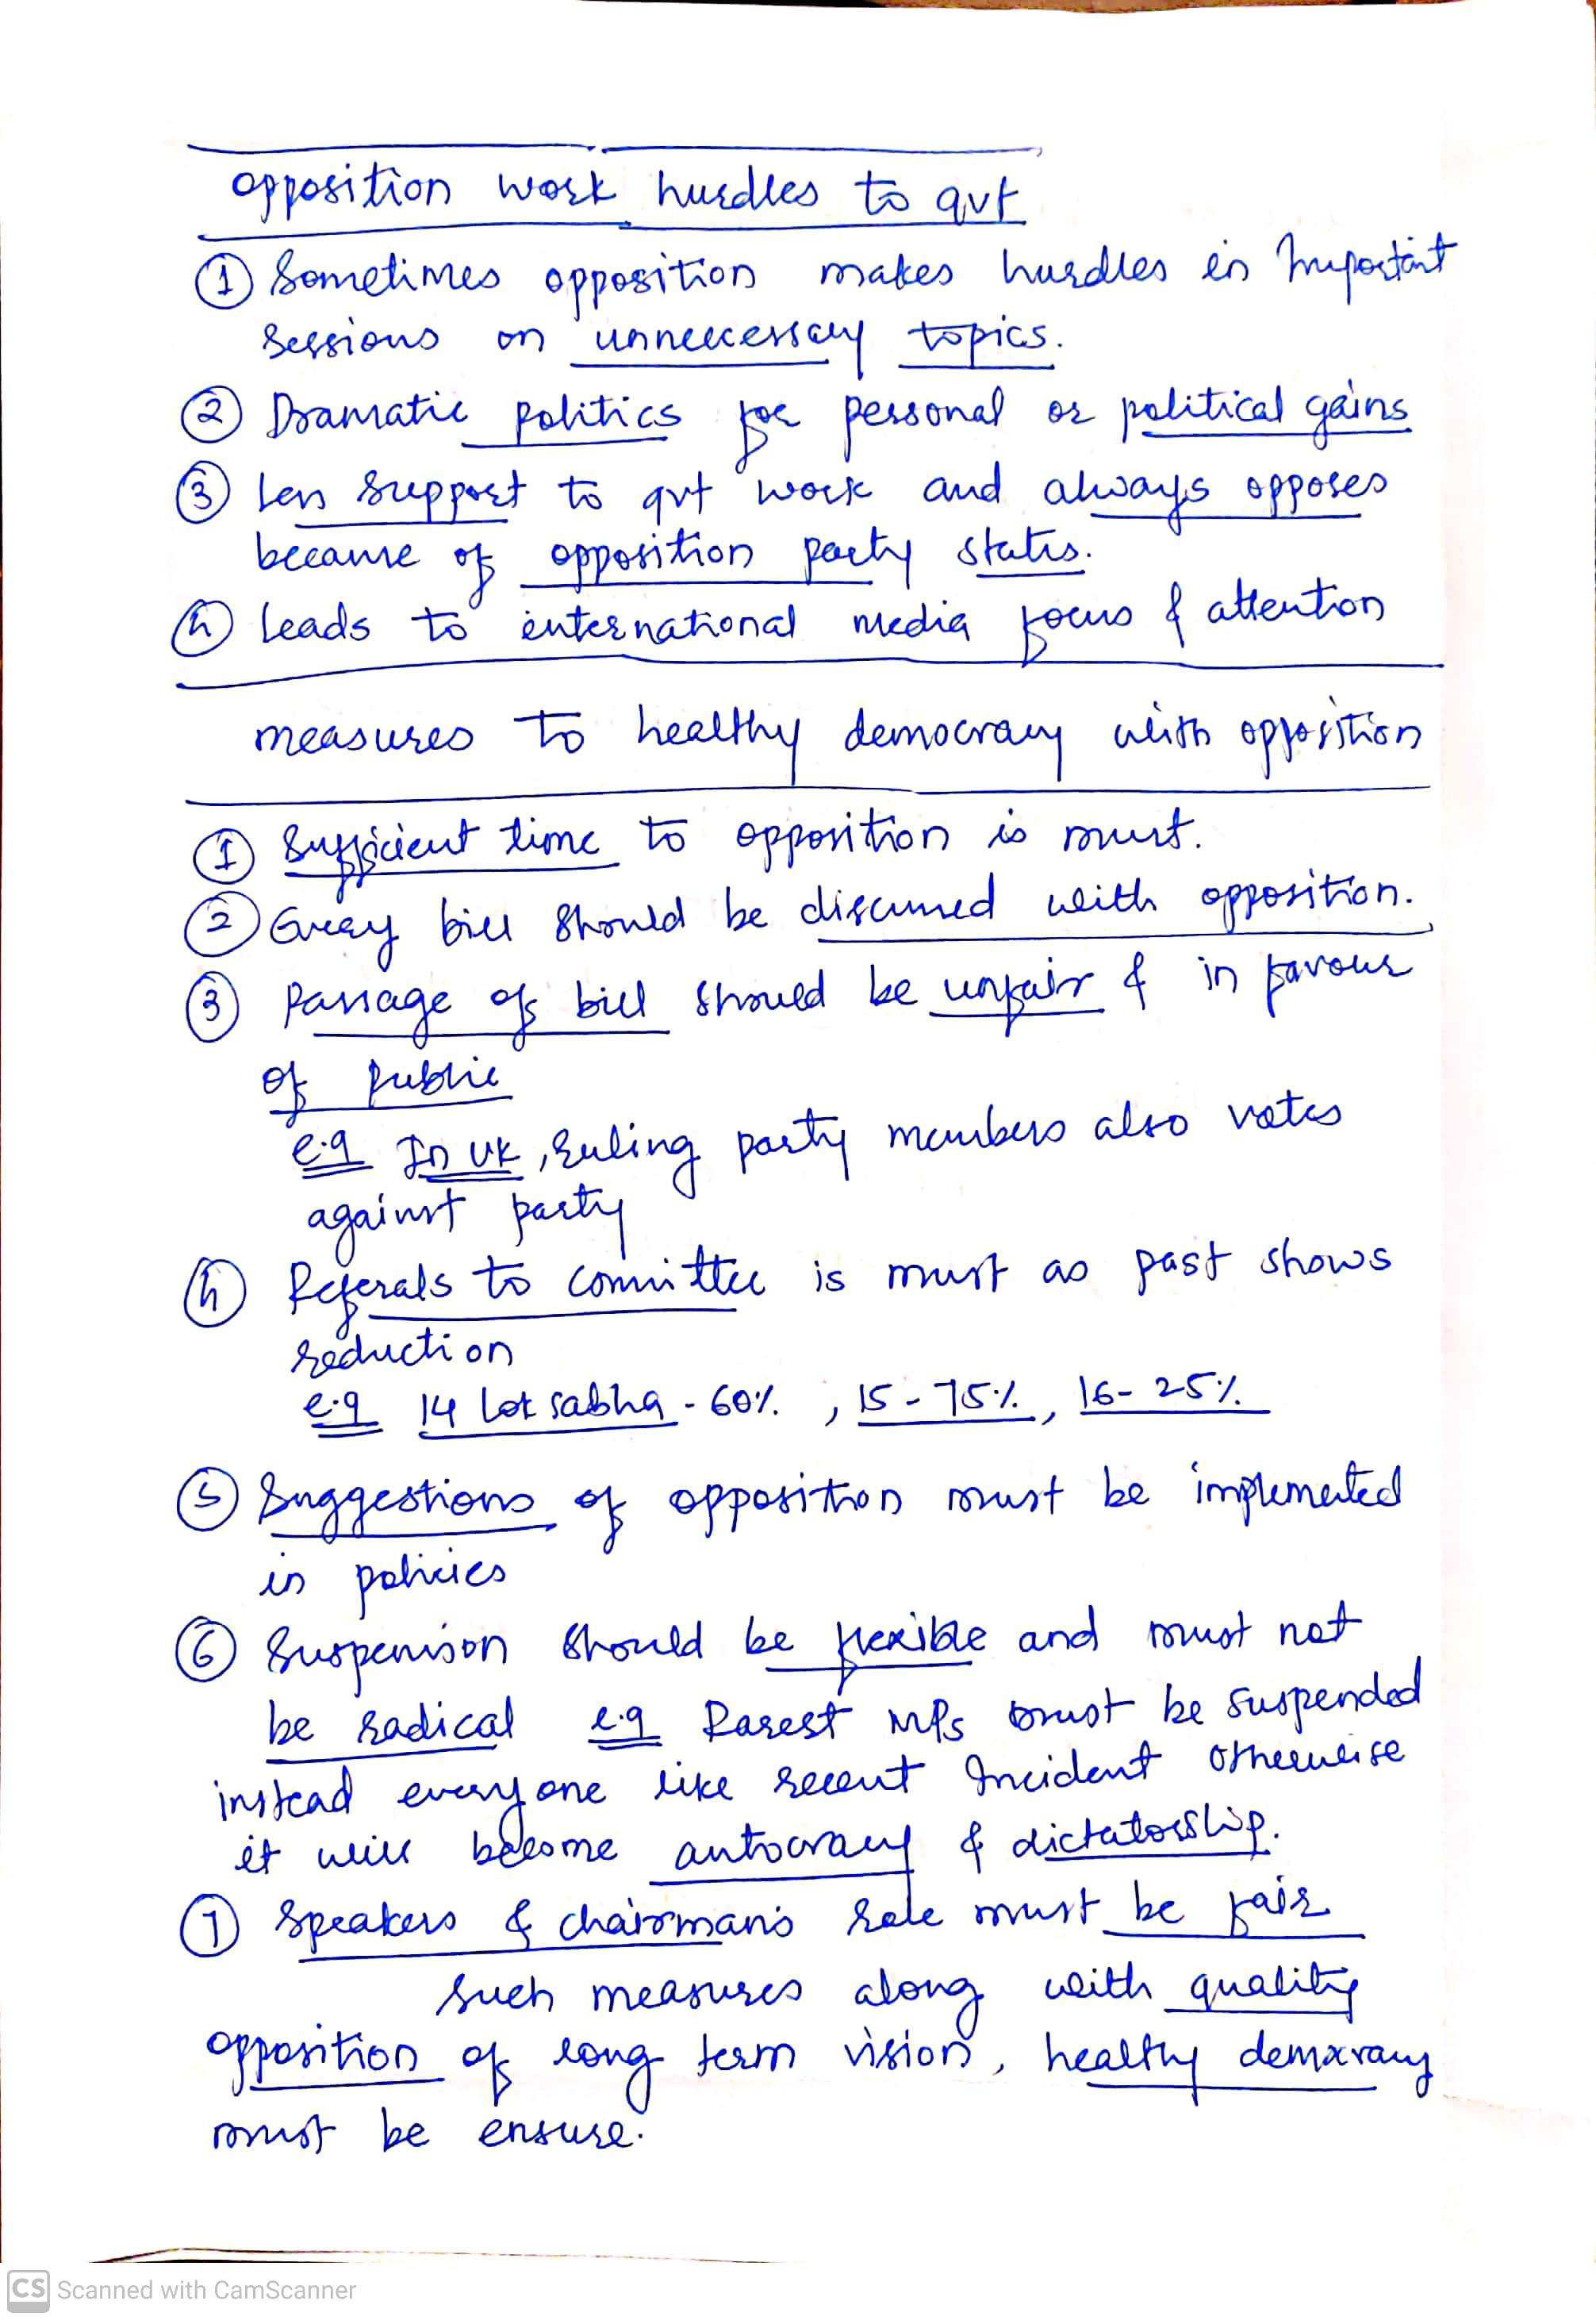 opposition work hurdles to gvt
① Sometimes opposition makes hurdles in Important
sessions on unneecessary topics.
② Dramatic politics for personal or political gains
③ Less support to gvt work and always opposes
because of opposition party status.
④ leads to international media focus & attention
measures to healthy democracy with opposition
① Sufficient time to opposition is must.
② Every bill should be discussed with opposition.
③ Passage of bill should be unfair & in favour
of public
e.g In UK, ruling party members also votes
against party
④ Referals to committee is must as past shows
reduction
e.g 14 lok sabha - 60%, 15 - 75%, 16 - 25%
⑤ Suggestions of opposition must be implemented
in policies
⑥ Suspenison should be flexible and must not
be radical e.g Rarest MPs must be suspended
instead everyone like recent Incident otherwise
it will become autocracy & dictatorship.
⑦ Speakers & chairman's role must be fair
such measures along with quality
opposition of long term vision, healthy democracy
must be ensure.
CS Scanned with CamScanner